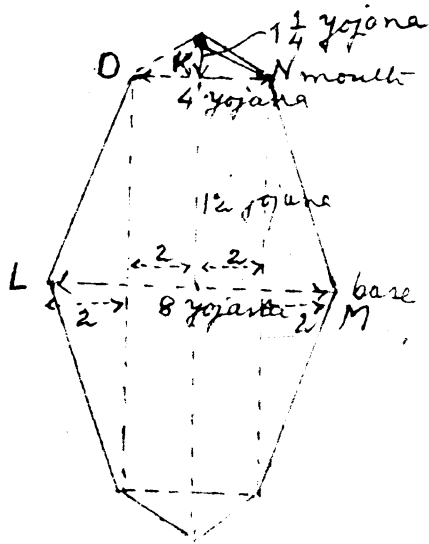 1 1/4 yojana
O K N mouth
4 yojana
12 yojana
2 2
L 8 yojana base
2 2 M